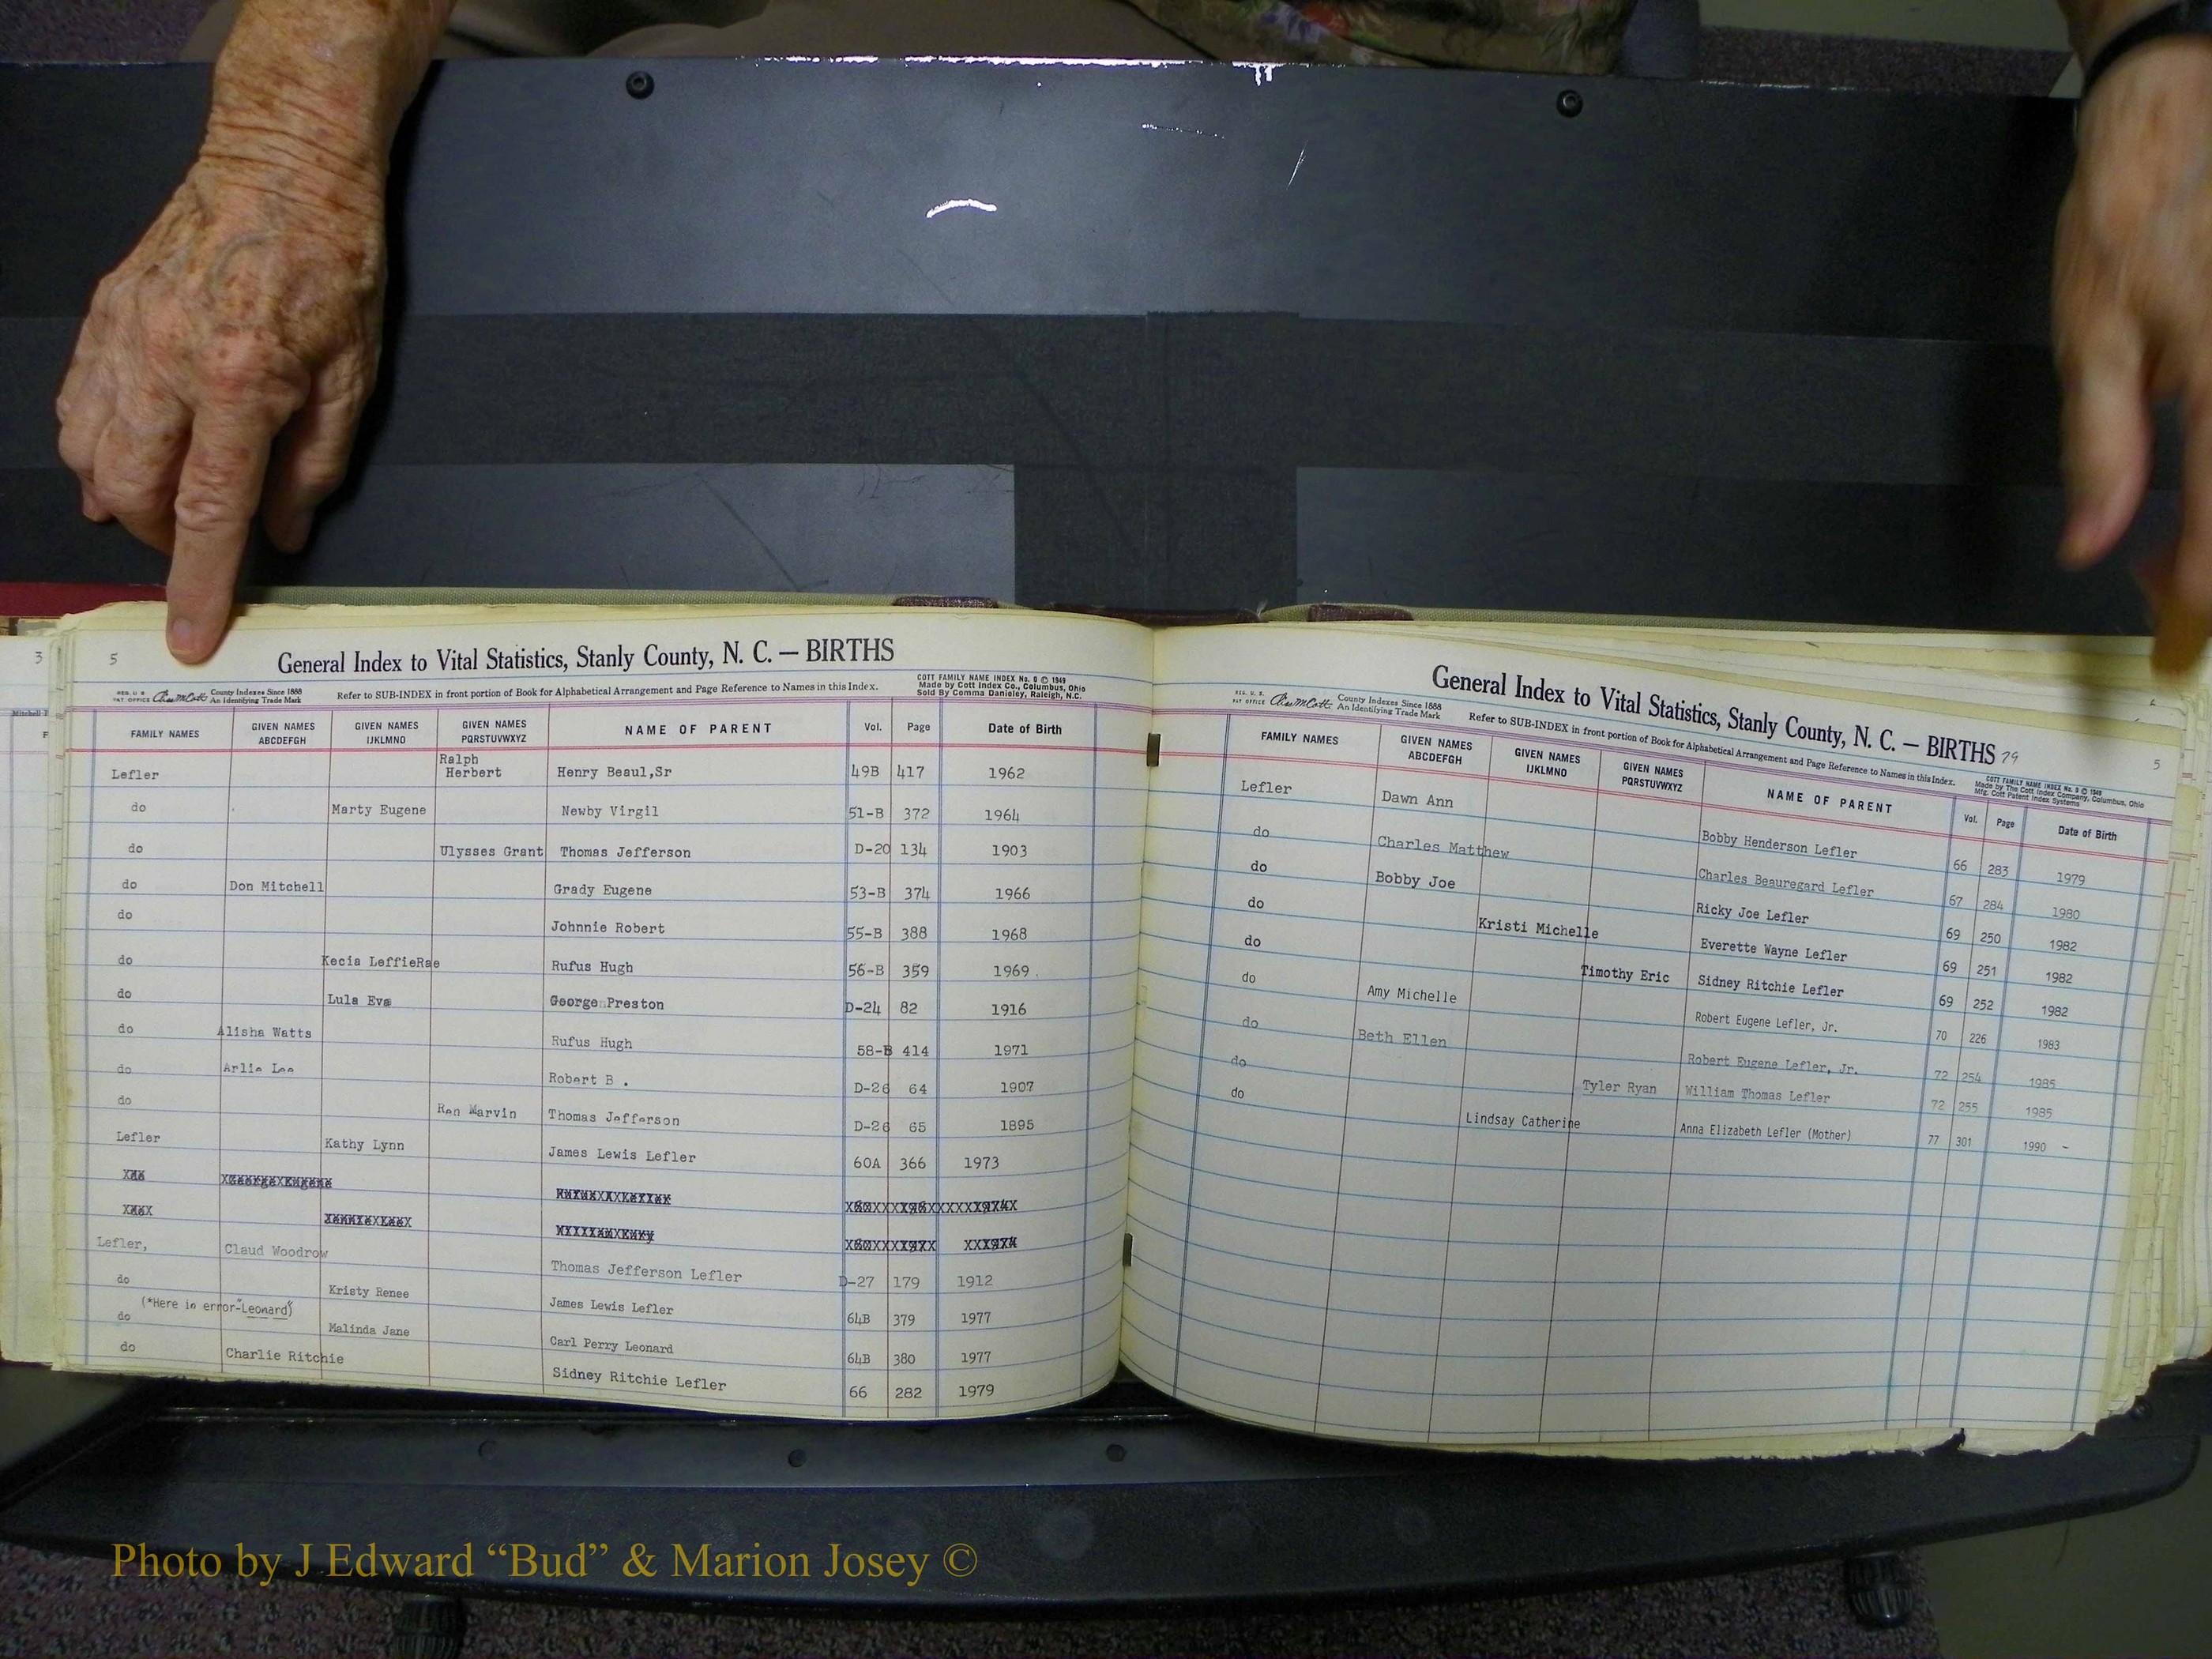 3
5
General Index to Vital Statistics, Stanly County, N. C. — BIRTHS
REG. U. S. PAT OFFICE County Indexes Since 1888 An Identifying Trade Mark
Refer to SUB-INDEX in front portion of Book for Alphabetical Arrangement and Page Reference to Names in this Index.
COTT FAMILY NAME INDEX No. 6 © 1949
Made by Cott Index Co., Columbus, Ohio
Sold By Comma Danieley, Raleigh, N.C.
FAMILY NAMES GIVEN NAMES ABCDEFGH GIVEN NAMES IJKLMNO GIVEN NAMES PQRSTUVWXYZ NAME OF PARENT Vol. Page Date of Birth
Lefler Ralph Herbert Henry Beaul,Sr 49B 417 1962
do Marty Eugene Newby Virgil 51-B 372 1964
do Ulysses Grant Thomas Jefferson D-20 134 1903
do Don Mitchell Grady Eugene 53-B 374 1966
do Johnnie Robert 55-B 388 1968
do Kecia LeffieRae Rufus Hugh 56-B 359 1969
do Lula Eva George Preston D-24 82 1916
do Alisha Watts Rufus Hugh 58-B 414 1971
do Arlie Lee Robert B . D-26 64 1907
do Ren Marvin Thomas Jefferson D-26 65 1895
Lefler Kathy Lynn James Lewis Lefler 60A 366 1973
Lefler, Claud Woodrow Thomas Jefferson Lefler D-27 179 1912
do Kristy Renee James Lewis Lefler 64B 379 1977
(*Here in error-"Leonard")
do Malinda Jane Carl Perry Leonard 64B 380 1977
do Charlie Ritchie Sidney Ritchie Lefler 66 282 1979
General Index to Vital Statistics, Stanly County, N. C. — BIRTHS 79
5
REG. U. S. PAT OFFICE County Indexes Since 1888 An Identifying Trade Mark
Refer to SUB-INDEX in front portion of Book for Alphabetical Arrangement and Page Reference to Names in this Index.
COTT FAMILY NAME INDEX No. 6 © 1949
Made by The Cott Index Company, Columbus, Ohio
Mfg. Cott Patent Index Systems
FAMILY NAMES GIVEN NAMES ABCDEFGH GIVEN NAMES IJKLMNO GIVEN NAMES PQRSTUVWXYZ NAME OF PARENT Vol. Page Date of Birth
Lefler Dawn Ann Bobby Henderson Lefler 66 283 1979
do Charles Matthew Charles Beauregard Lefler 67 284 1980
do Bobby Joe Ricky Joe Lefler 69 250 1982
do Kristi Michelle Everette Wayne Lefler 69 251 1982
do Timothy Eric Sidney Ritchie Lefler 69 252 1982
do Amy Michelle Robert Eugene Lefler, Jr. 70 226 1983
do Beth Ellen Robert Eugene Lefler, Jr. 72 254 1985
do Tyler Ryan William Thomas Lefler 72 255 1985
do Lindsay Catherine Anna Elizabeth Lefler (Mother) 77 301 1990 -
Photo by J Edward “Bud” & Marion Josey ©